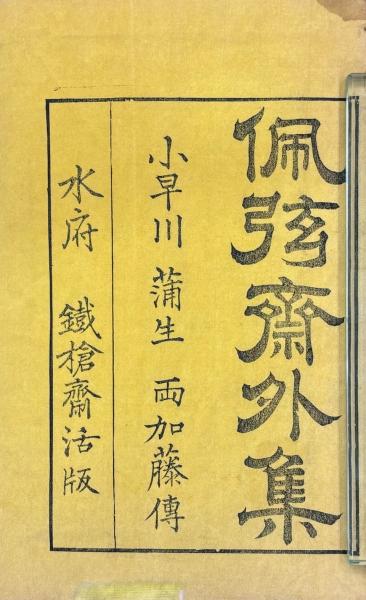 佩弦齋外集
小早川 蒲生 両加藤傳
水府 鐵槍齋活版